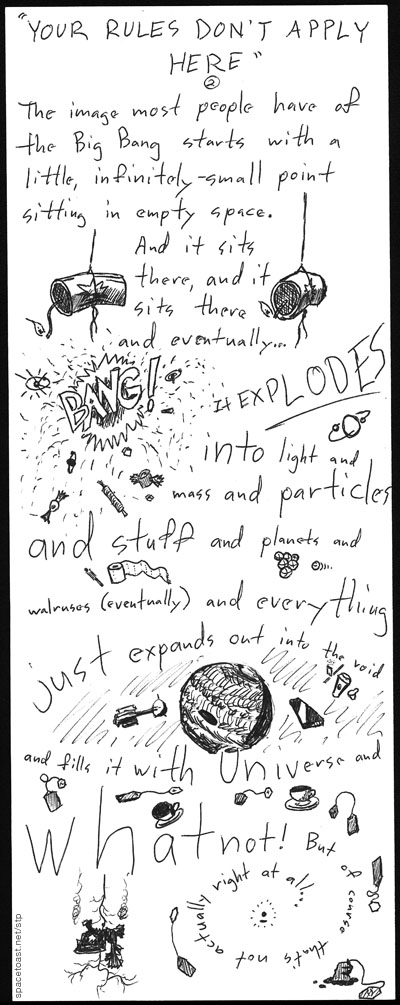 "YOUR RULES DON'T APPLY
HERE"
2
The image most people have of
the Big Bang starts with a
little, infinitely-small point
sitting in empty space.
And it sits
there, and it
sits there
and eventually...
BANG!
it EXPLODES
into light and
mass and particles
and stuff and planets and
walruses (eventually) and everything
just expands out into the void
and fills it with Universe and
whatnot! But
of course
that's not
actually
right at all...
spacetoast.net/stp